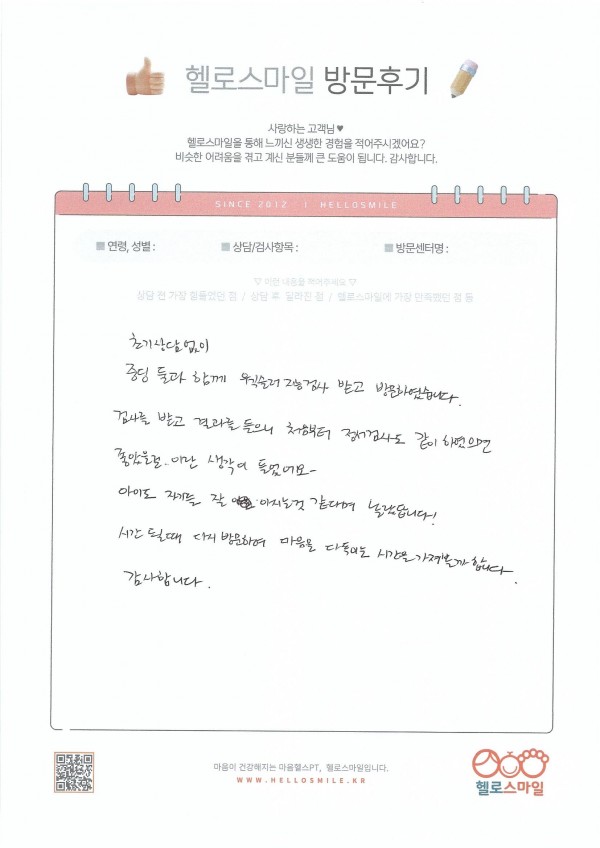 헬로스마일 방문후기
사랑하는 고객님♥
헬로스마일을 통해 느끼신 생생한 경험을 적어주시겠어요?
비슷한 어려움을 겪고 계신 분들께 큰 도움이 됩니다. 감사합니다.
SINCE 2012 | HELLOSMILE
연령, 성별 :
상담/검사항목 :
방문센터명 :
▽ 이런 내용을 적어주세요 ▽
상담 전 가장 힘들었던 점 / 상담 후 달라진 점 / 헬로스마일에 가장 만족했던 점 등
초기상담없이
중딩 둘과 함께 웩슬러 지능검사 받고 방문하였습니다.
검사를 받고 결과를 들으니 처음부터 정서검사도 같이 하였으면
좋았을걸.. 이란 생각이 들었어요~
아이도 자기를 잘 아시는것 같다며 놀랐답니다!
시간 될때 다시 방문하여 마음을 다독이는 시간을 가져볼까 합니다.
감사합니다.
마음이 건강해지는 마음헬스PT, 헬로스마일입니다.
WWW.HELLOSMILE.KR
헬로스마일